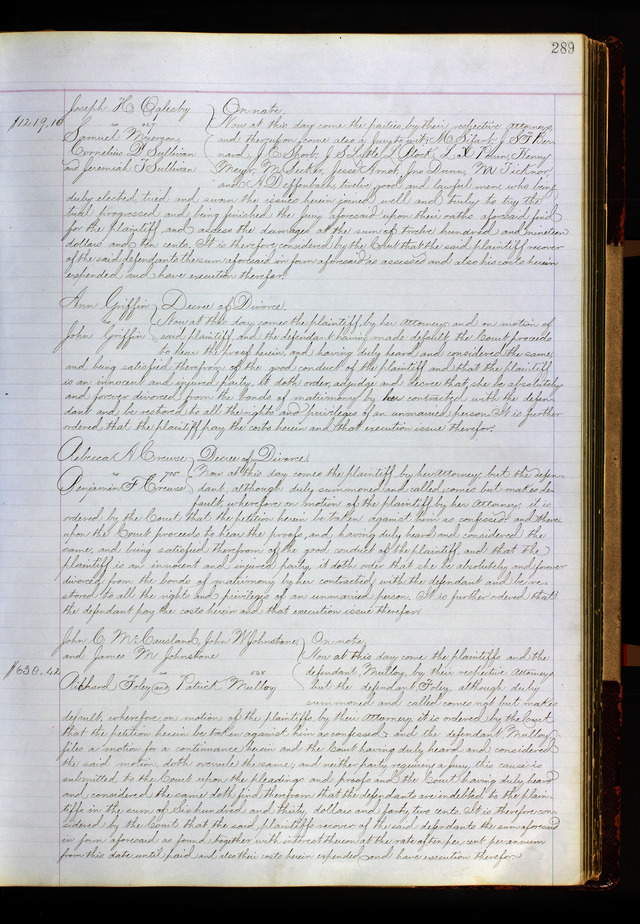 289
Joseph H Oglesby On note.
$1219.10 vs Now at this day come the parties, by their respective attorneys,
Samuel and thereupon come also a jury to wit: M J S F Ber
Cornelius D Sullivan nard, J C Short, J S Lytle, L Henry
and Jeremiah T Sullivan Meyer, M Jesse Arnot, Jno Dunn, Wm Ticknor,
and A Deffenbach, twelve good and lawful men, who being
duly elected, tried and sworn the issues herein joined well and truly to try the
trial progressed and being finished the jury aforesaid upon their oaths aforesaid find
for the plaintiff and assess the damages at the sum of twelve hundred and nineteen
dollars and ten cents. It is therefore considered by the Court that the said plaintiff recover
of the said defendants the sum aforesaid in form aforesaid as assessed and also his costs herein
expended and have execution therefor.
Ann Griffin Decree of Divorce.
vs Now at this day comes the plaintiff, by her attorney, and on motion of
John Griffin said plaintiff and the defendant having made default the Court proceeds
to hear the proof herein, and having duly heard and considered the same,
and being satisfied therefrom of the good conduct of the plaintiff and that the plaintiff
is an innocent and injured party, it doth order, adjudge and decree that she be absolutely
and forever divorced from the bonds of matrimony by her contracted with the defen-
dant and be restored to all the rights and privileges of an unmarried person. It is further
ordered that the plaintiff pay the costs herein and that execution issue therefor.
Rebecca N Creuse Decree of Divorce.
vs Now at this day comes the plaintiff by her attorney, but the defen-
Benjamin F Creuse dant, although duly summoned and called comes but makes de-
fault, wherefore on motion of the plaintiff by her attorney it is
ordered by the Court that the petition herein be taken against him as confessed and there
upon the Court proceeds to hear the proofs, and having duly heard and considered the
same, and being satisfied therefrom of the good conduct of the plaintiff and that the
plaintiff is an innocent and injured party, it doth order that she be absolutely and forever
divorced from the bonds of matrimony by her contracted with the defendant and be re-
stored to all the rights and privileges of an unmarried person. It is further ordered that
the defendant pay the costs herein and that execution issue therefor.
John C McCausland, John W Johnstone On note,
and James M Johnstone Now at this day come the plaintiffs and the
$630.42 vs defendant, Mulloy, by their respective attorneys
Richard Foley and Patrick Mulloy but the defendant Foley, although duly
summoned and called comes not but makes
default, wherefore on motion of the plaintiffs by their attorney, it is ordered by the Court
that the petition herein be taken against him as confessed and the defendant Mulloy
files a motion for a continuance herein and the Court having duly heard and considered
the said motion, doth overrule the same; and neither party requiring a jury, this cause is
submitted to the Court upon the pleadings and proofs and the Court having duly heard
and considered the same doth find therefrom that the defendants are indebted to the plain-
tiffs in the sum of Six hundred and thirty dollars and forty two cents. It is therefore con-
sidered by the Court that the said plaintiffs recover of the said defendants the sum aforesaid
in form aforesaid so found, together with interest thereon at the rate of ten per cent per annum
from this date until paid and also their costs herein expended and have execution therefor